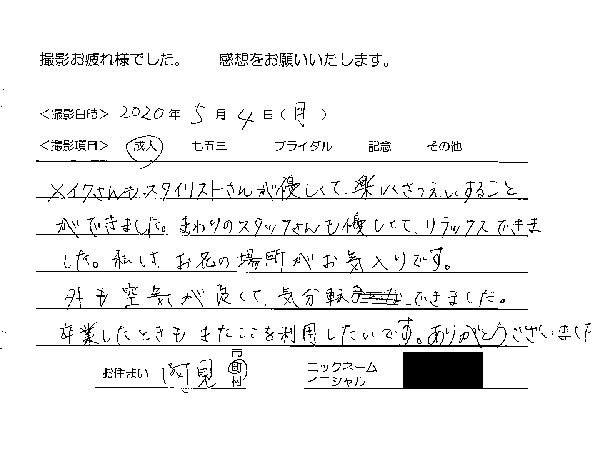 撮影お疲れ様でした。 感想をお願いいたします。
<撮影日時> 2020年 5月 4日(月)
<撮影項目> 成人 七五三 ブライダル 記念 その他
メイクさんもスタイリストさんが優しくて、楽しくさつえいすること
ができました。まわりのスタッフさんも優しくて、リラックスできま
した。私は、お花の場所がお気入りです。
外も空気が良くて、気分転 できました。
卒業したときもまたここを利用したいです。ありがとうございました
お住まい 阿見 市町村 ニックネーム イニシャル